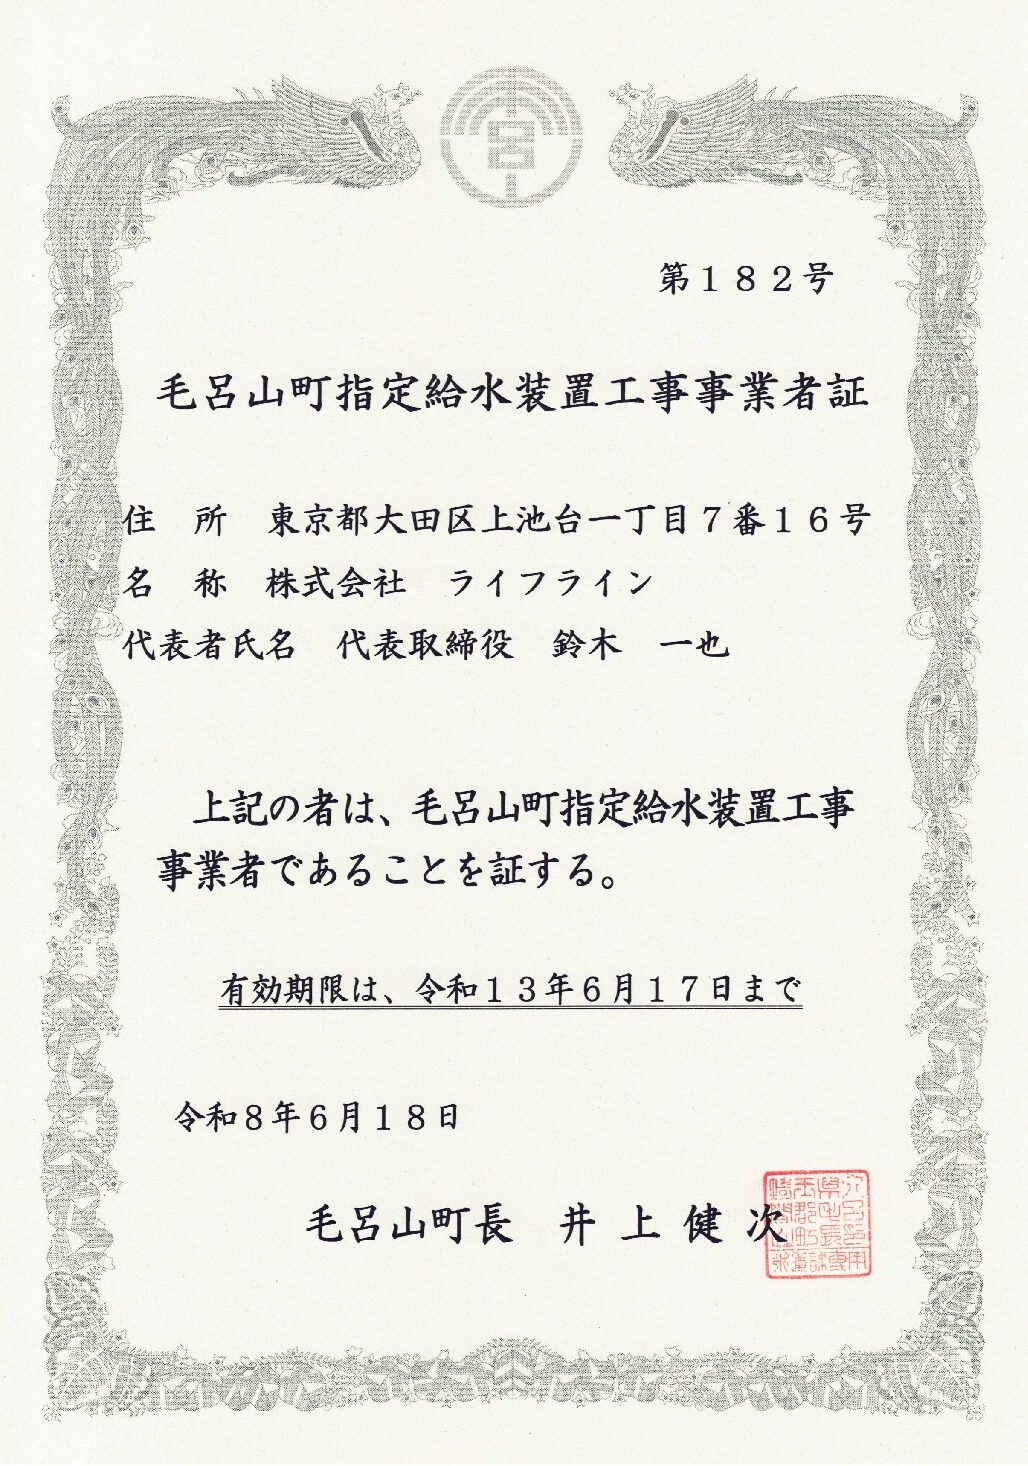 第１８２号
毛呂山町指定給水装置工事事業者証
住　所　東京都大田区上池台一丁目７番１６号
名　称　株式会社　ライフライン
代表者氏名　代表取締役　鈴木　一也
上記の者は、毛呂山町指定給水装置工事
事業者であることを証する。
有効期限は、令和１３年６月１７日まで
令和８年６月１８日
毛呂山町長　井上健次